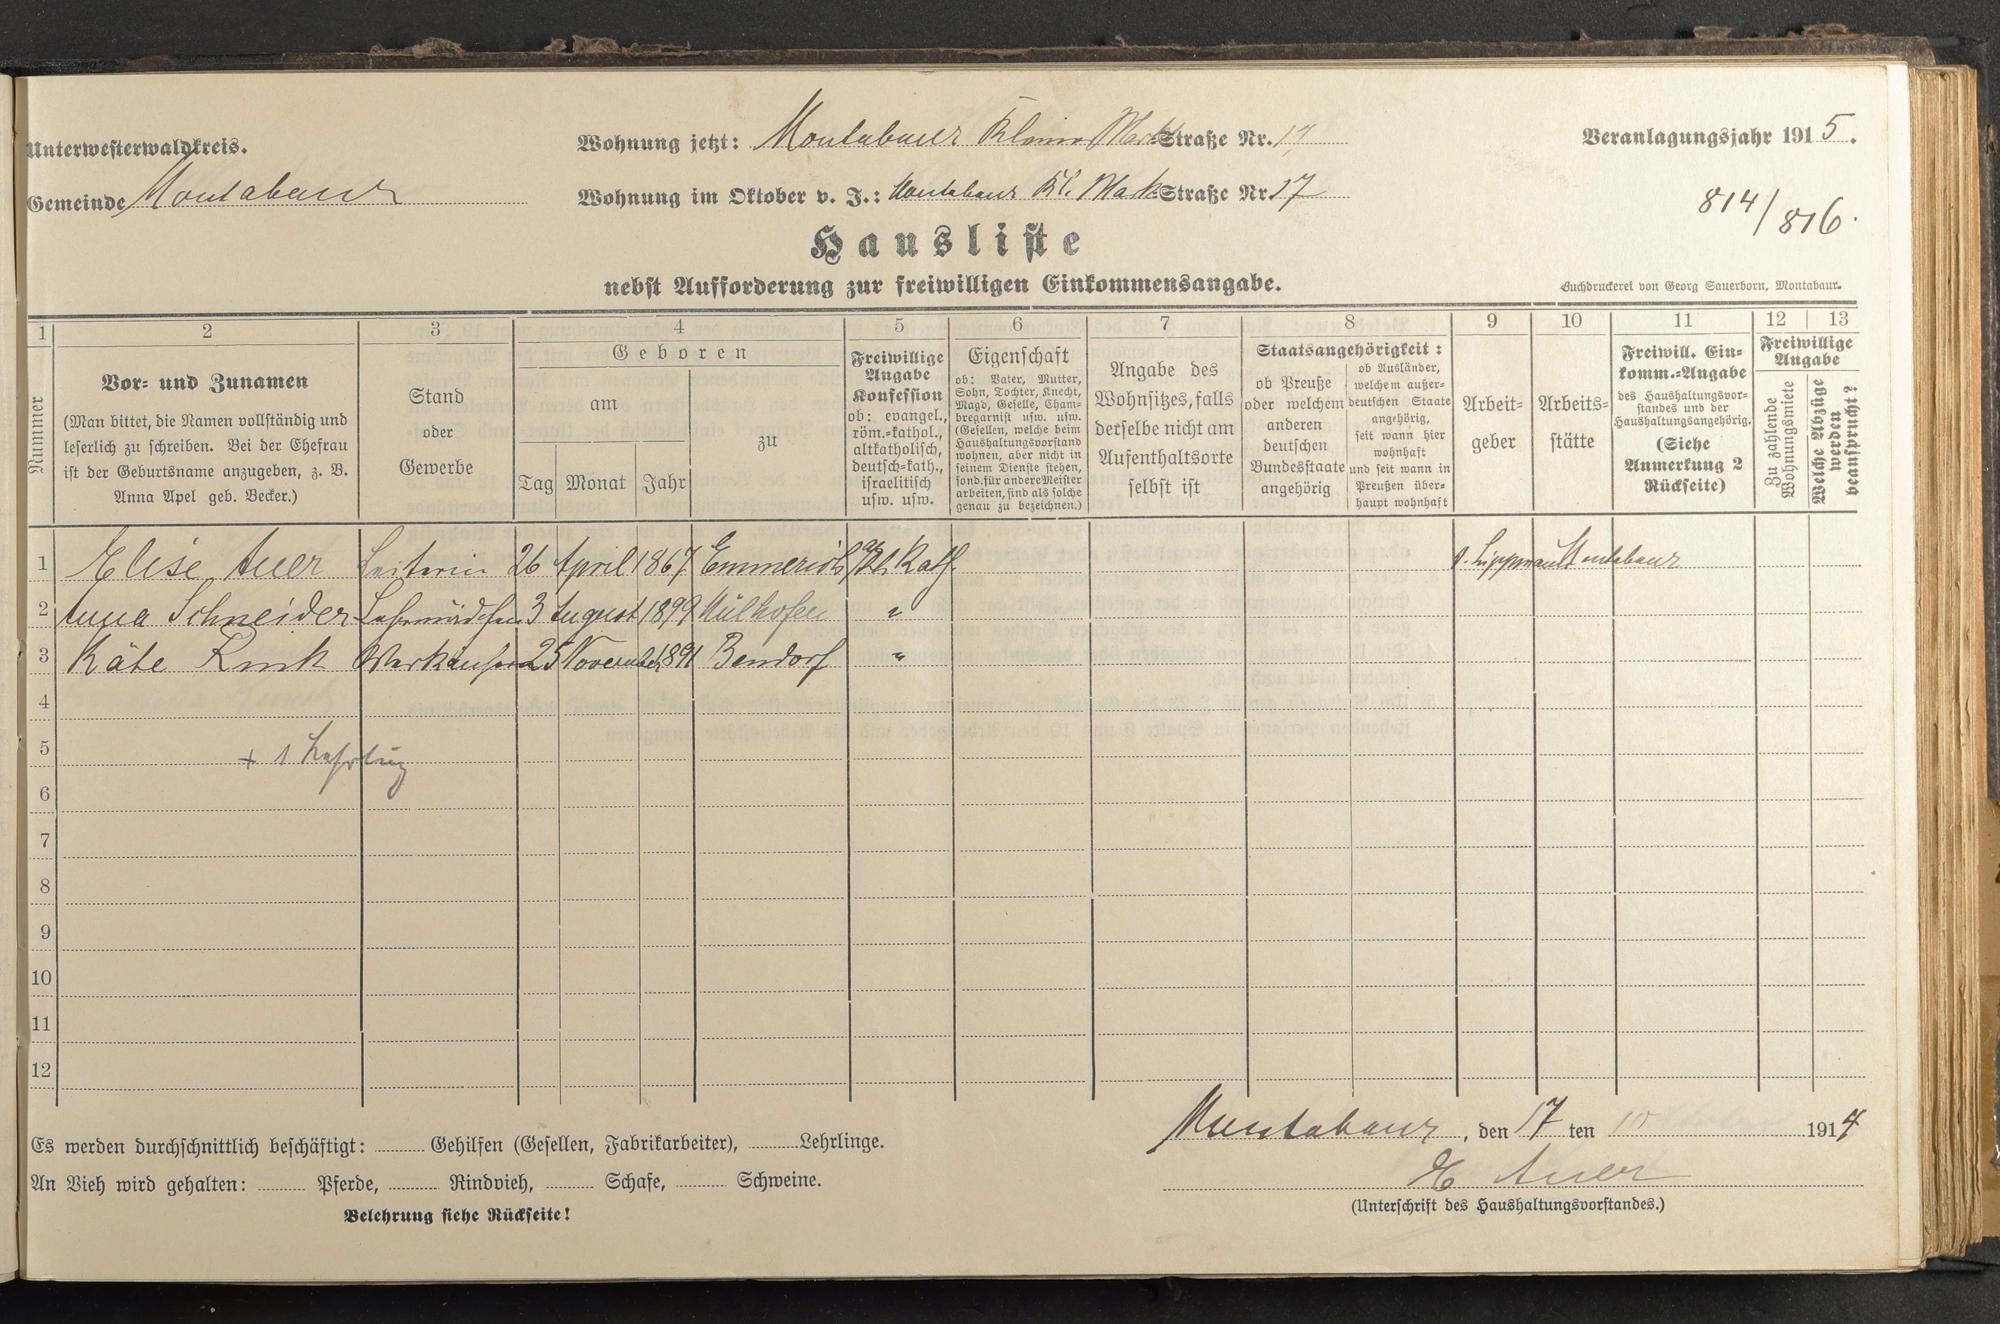 Unterwesterwaldkreis.
Gemeinde Montabaur
Wohnung jetzt: Montabaur Kleiner Markt Straße Nr. 17
Wohnung im Oktober v. J.: Montabaur Kl. Mark Straße Nr 17
Veranlagungsjahr 1915.
814/816.
Hausliste
nebst Aufforderung zur freiwilligen Einkommensangabe.
Buchdruckerei von Georg Sauerborn, Montabaur.
1
Nummer
2
Vor- und Zunamen
(Man bittet, die Namen vollständig und
leserlich zu schreiben. Bei der Ehefrau
ist der Geburtsname anzugeben, z. B.
Anna Apel geb. Becker.)
3
Stand
oder
Gewerbe
4
Geboren
am
Tag Monat Jahr
zu
5
Freiwillige
Angabe
Konfession
ob: evangel.,
röm.-kathol.,
altkatholisch,
deutsch-kath.,
israelitisch
usw. usw.
6
Eigenschaft
ob: Vater, Mutter,
Sohn, Tochter, Knecht,
Magd, Geselle, Cham-
bregarnist usw. usw.
(Gesellen, welche beim
Haushaltungsvorstand
wohnen, aber nicht in
seinem Dienste stehen,
sond. für andere Meister
arbeiten, sind als solche
genau zu bezeichnen.)
7
Angabe des
Wohnsitzes, falls
derselbe nicht am
Aufenthaltsorte
selbst ist
8
Staatsangehörigkeit:
ob Preuße
oder welchem
anderen
deutschen
Bundesstaate
angehörig
ob Ausländer,
welchem außer-
deutschen Staate
angehörig,
seit wann hier
wohnhaft
und seit wann in
Preußen über-
haupt wohnhaft
9
Arbeit-
geber
10
Arbeits-
stätte
11
Freiwill. Ein-
komm.-Angabe
des Haushaltungsvor-
standes und der
Haushaltungsangehörig.
(Siehe
Anmerkung 2
Rückseite)
12 13
Freiwillige
Angabe
Zu zahlende
Wohnungsmiete
Welche Abzüge
werden
beansprucht?
1 Elise Auer Leiterin 26 April 1867 Emmerich a/Rh. Kath. Montabaur
2 Anna Schneider Lehrmädchen 3 August 1899 Mülhofen "
3 Käte Verkäuferin 25 November 1891 Bendorf "
4
5
+ 1 Lehrling
6
7
8
9
10
11
12
Es werden durchschnittlich beschäftigt: Gehilfen (Gesellen, Fabrikarbeiter), Lehrlinge.
An Vieh wird gehalten: Pferde, Rindvieh, Schafe, Schweine.
Belehrung siehe Rückseite!
Montabaur, den 17 ten 1914
E Auer
(Unterschrift des Haushaltungsvorstandes.)